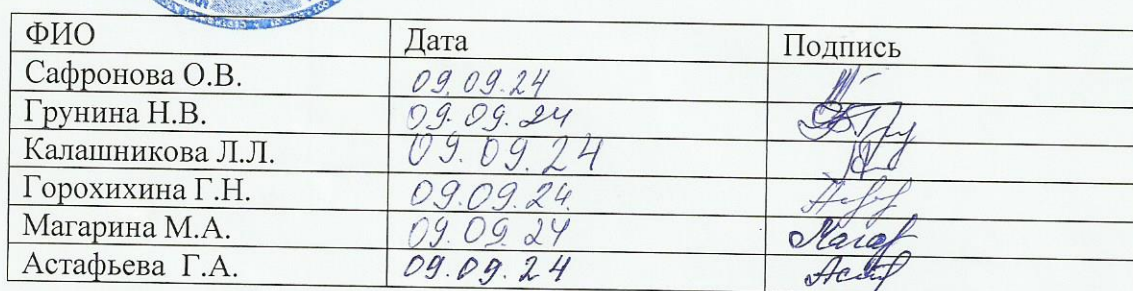 ФИО Дата Подпись
Сафронова О.В. 09.09.24
Грунина Н.В. 09.09.24
Калашникова Л.Л. 09.09.24
Горохихина Г.Н. 09.09.24.
Магарина М.А. 09.09.24
Астафьева Г.А. 09.09.24